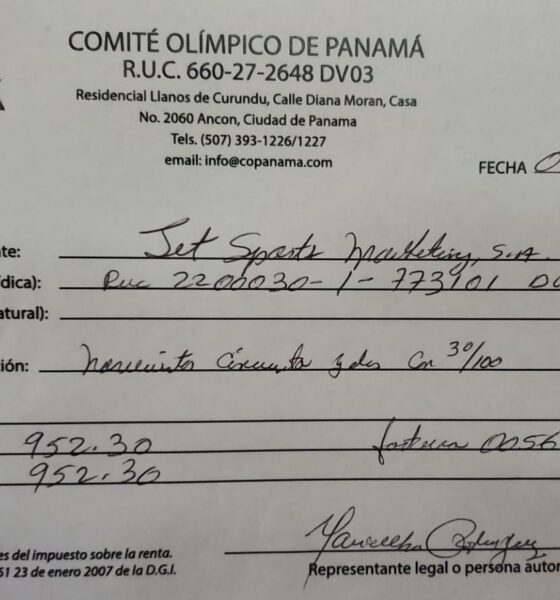 COMITÉ OLÍMPICO DE PANAMÁ
R.U.C. 660-27-2648 DV03
Residencial Llanos de Curundu, Calle Diana Moran, Casa
No. 2060 Ancon, Ciudad de Panama
Tels. (507) 393-1226/1227
email: info@copanama.com
FECHA 0
nte: Jet Sports Marketing, S.A.
ídica): Ruc 2200030-1-773101 D
atural):
ión: novecientos cincuenta y dos con 30/100
952.30 factura 0056
952.30
es del impuesto sobre la renta.
61 23 de enero 2007 de la D.G.I.
Representante legal o persona autor